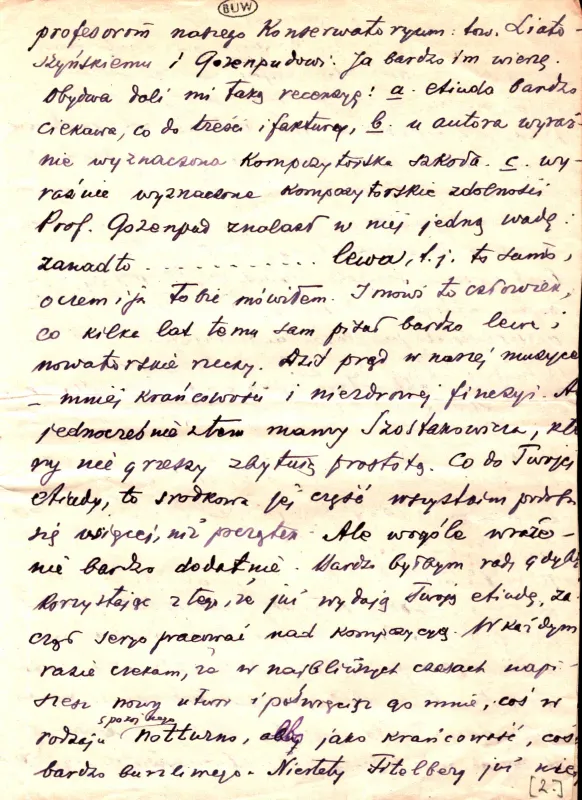 BUW
profesorom naszego Konserwatoryum: tow. Liato-
szyńskiemu i Gozenpudowi. Ja bardzo im wierzę.
Obydwa dali mi taką recenzję: a. etiuda bardzo
ciekawa, co do treści i faktury, b. u autora wyraź-
nie wyznaczona kompozytorska szkoła. c. wy-
raźnie wyznaczone kompozytorskie zdolności
Prof. Gozenpud znalazł w niej jedną wadę:
zanadto . . . . . . . . . . . lewa, t.j. to samo,
o czem i ja tobie mówiłem. I mówi to człowiek,
co kilka lat temu sam pisał bardzo lewe i
nowatorskie rzeczy. Dziś prąd w naszej muzyce
– mniej krańcowości i niezdrowej finezyi. A
jednocześnie z tem mamy Szostakowicza, któ
ry nie grzeszy zbytnią prostotą. Co do Twojej
etiudy, to środkowa jej część wszystkim podoba
się więcej, niż początek. Ale wogóle wraże-
nie bardzo dodatnie. Bardzo byłbym rad, gdybyś
korzystając z tego, że już wydają Twoją etiudę, za-
czął seryo pracować nad kompozycyą. W każdym
razie czekam, że w najbliższych czasach napi-
szesz nowy utwór i poświęcisz go mnie, coś w
rodzaju spokojnego notturno, albo jako krańcowość, coś
bardzo burzliwego. Niestety Fitelberg już
[2.]